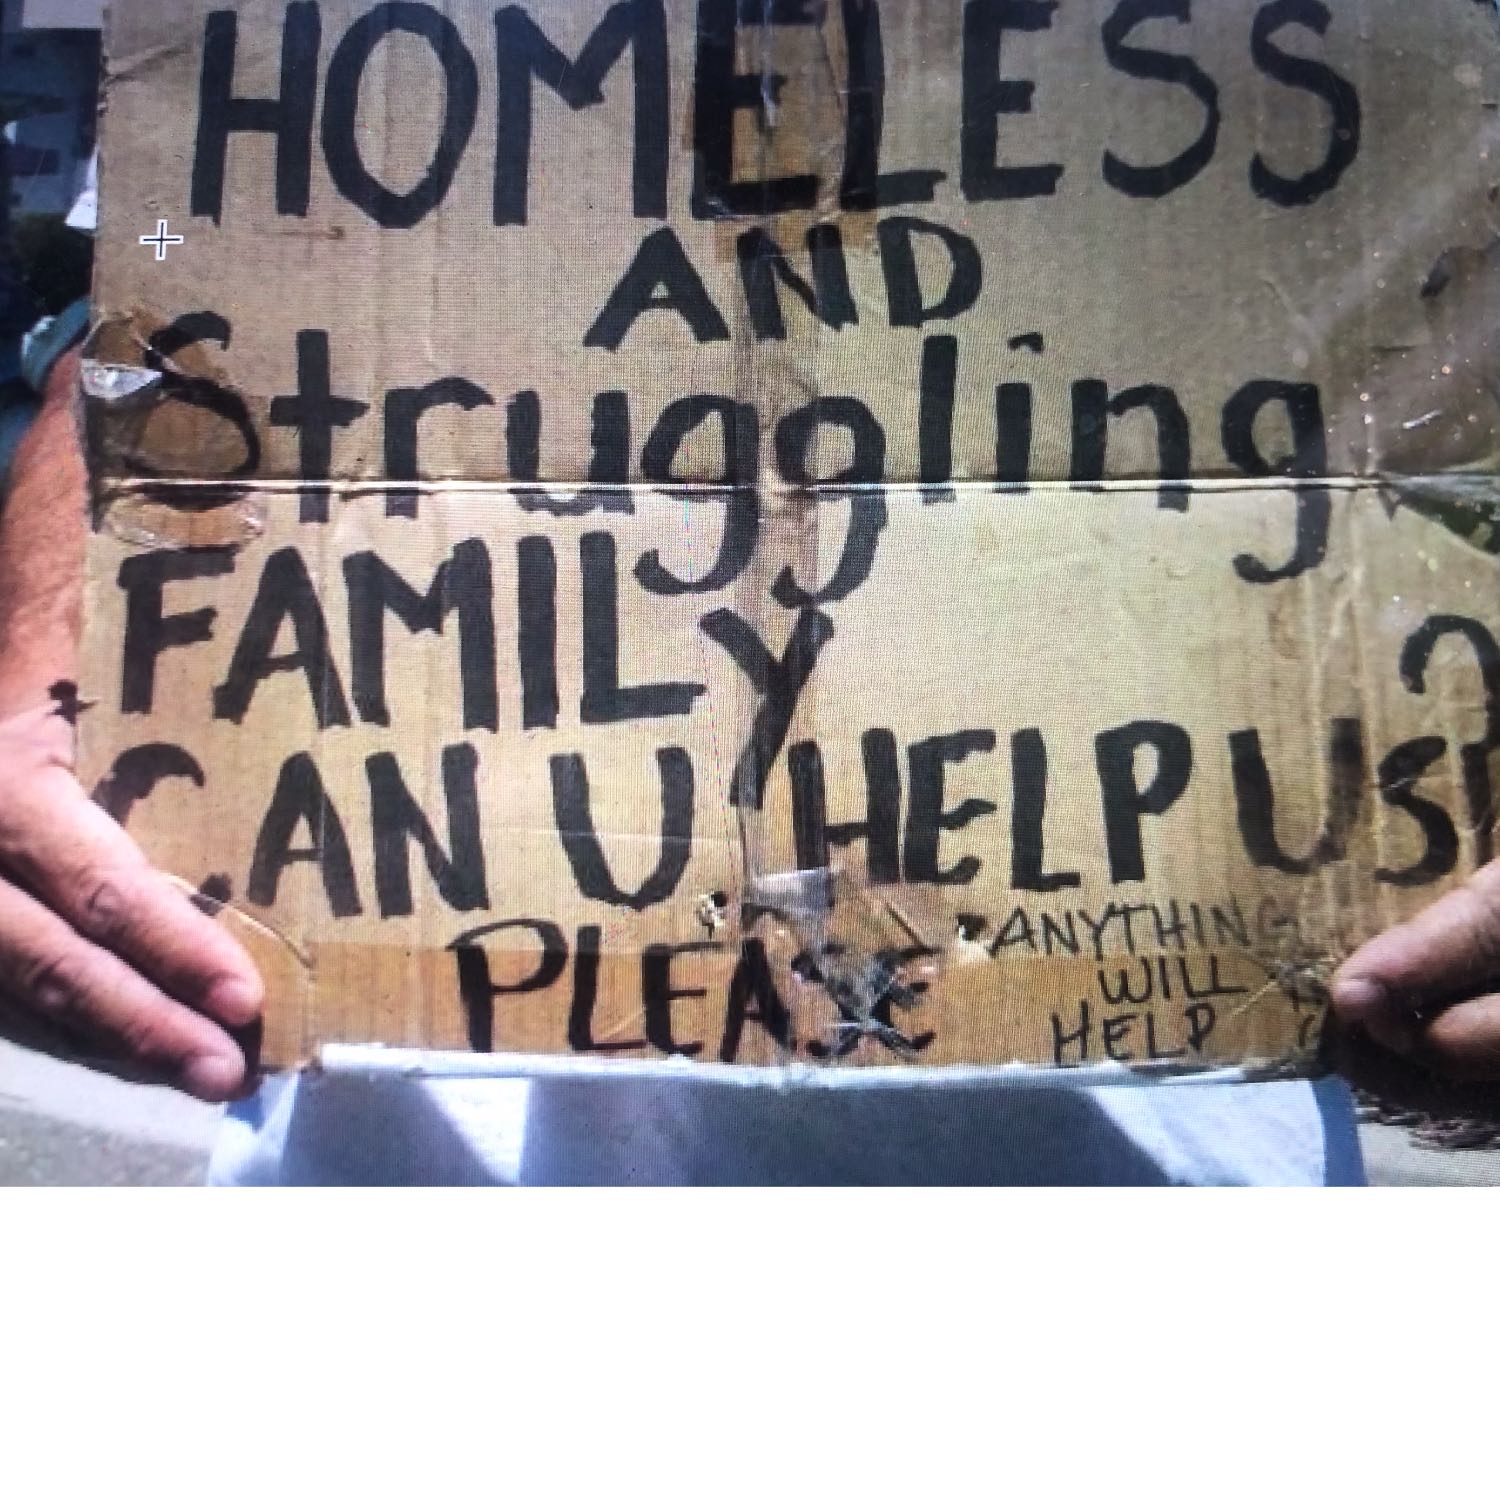 HOMELESS
AND
Struggling
FAMILY
CAN U HELP US?
PLEASE
ANYTHING
WILL
HELP